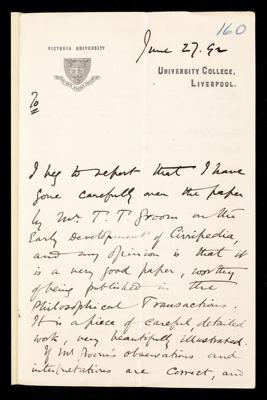 160
VICTORIA UNIVERSITY
June 27. 92
UNIVERSITY COLLEGE,
LIVERPOOL.
To
I beg to report that I have
gone carefully over the paper
by Mr. T. T. Groom on the
Early Development of Cirripedia,
and my opinion is that it
is a very good paper, worthy
of being published in the
Philosophical Transactions.
It is a piece of careful, detailed
work, very beautifully illustrated.
If Mr Groom's observations and
interpretations are correct, and